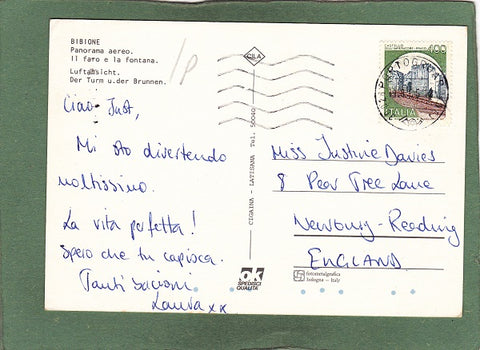 BIBIONE
Panorama aereo.
Il faro e la fontana.
Luftansicht.
Der Turm u.der Brunnen.
Ciao Just,
Mi sto divertendo
moltissimo.
La vita perfetta!
Spero che tu capisca.
Tanti bacioni
Laura xx
CIGAINA - LATISANA Tel. 50040
CILA
400
ITALIA
PORTOGRUARO
Miss Justine Davies
8 Pear Tree Lane
Newbury - Reading
ENGLAND
OK
SPEDISCI
QUALITÀ
fotometalgrafica
bologna - italy